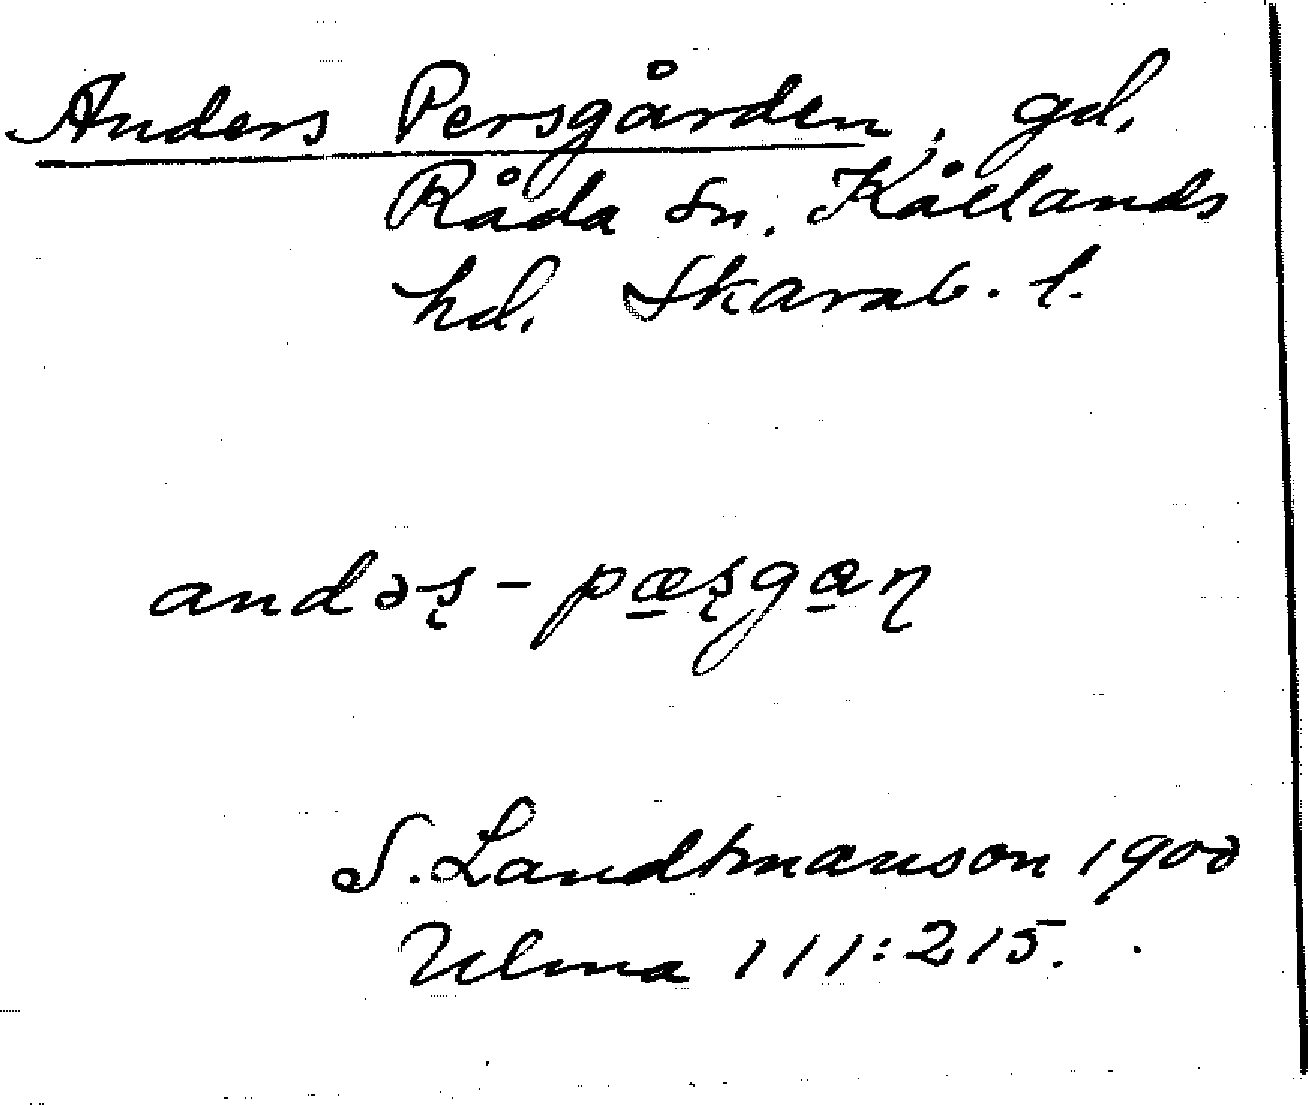 Anders Persgården, gd.
Råda sn. Kållands
hd. Skarab. l.
andəʂ-pæ̱ʂga̱ɳ
S. Landtmanson 1900
Ulma 111:215.